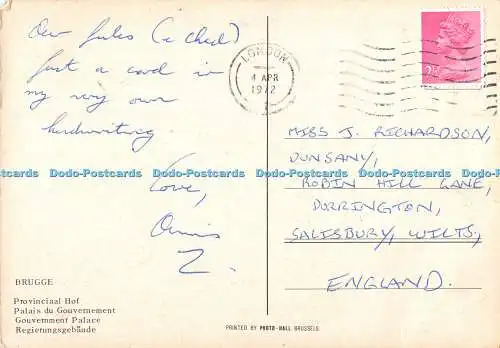 Dear Jules (& Ched)
Just a card in
my very own
handwriting
Love,
LONDON
4 APR
1972
MISS J. RICHARDSON,
DUNSANY,
ROBIN HILL LANE,
DURRINGTON,
SALISBURY, WILTS,
ENGLAND.
Dodo-Postcards Dodo-Postcards Dodo-Postcards Dodo-Postcards Dodo-Postcards
BRUGGE
Provinciaal Hof
Palais du Gouvernement
Government Palace
Regierungsgebäude
PRINTED BY PHOTO-HALL BRUSSELS